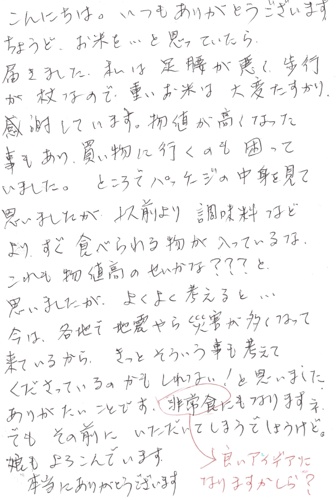 こんにちは。いつもありがとうございます
ちょうど、お米を…と思っていたら、
届きました。私は足腰が悪く歩行
が杖なので、重いお米は大変たすかり、
感謝しています。物価が高くなった
事もあり、買い物に行くのも困って
いました。ところでパッケージの中身を見て
思いましたが、以前より調味料など
より、すぐ食べられる物が入っているな、
これも物価高のせいかな???と、
思いましたが、よくよく考えると…
今は、各地で地震やら災害が多くなって
来ているから、きっとそういう事も考えて
くださっているのかもしれない!と思いました
ありがたいことです。非常食にもなりますネ
でもその前にいただいてしまうでしょうけど。
娘もよろこんでいます。
本当にありがとうございます
良いアイデアに
なりますかしら?